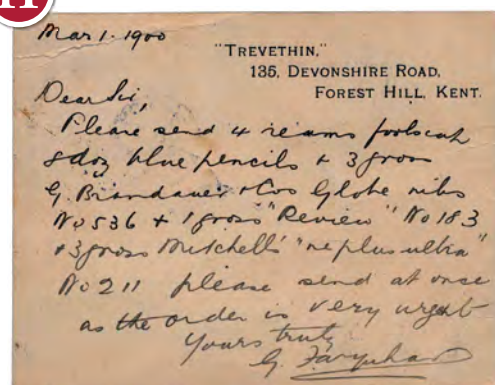 11
Mar 1. 1900
"TREVETHIN,"
135, DEVONSHIRE ROAD,
FOREST HILL, KENT.
Dear Sir,
Please send 4 reams foolscap
8 doz blue pencils + 3 gross
G. Brandauer + Cos Globe nibs
No 536 + 1 gross "Review" No 183
+ 3 gross Mitchell's "ne plus ultra"
No 211 please send at once
as the order is very urgent
Yours truly
G. Farquhar